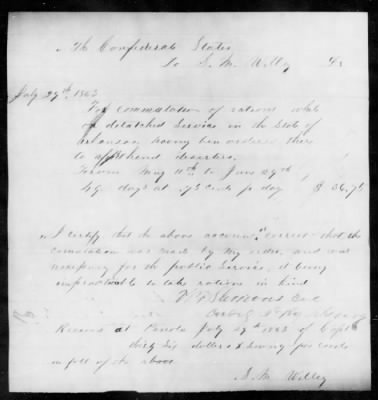 The Confederate States
To S. M. Willey Dr
July 29th 1863
For commutation of rations while
on detatched Service in the State of
Arkansas having been ordered there
to apprehend deserters.
From May 11th to June 29th,
49 days at .75 cents pr day $ 36.75
I certify that the above account is correct that the
commutation was made by my order, and was
necessary for the public Service, it being
impracticable to take rations in kind
Col
Received at Panola July 29th 1863 of Capt
thirty Six dollars & Seventy five cents
in full of the above
S. M. Willey